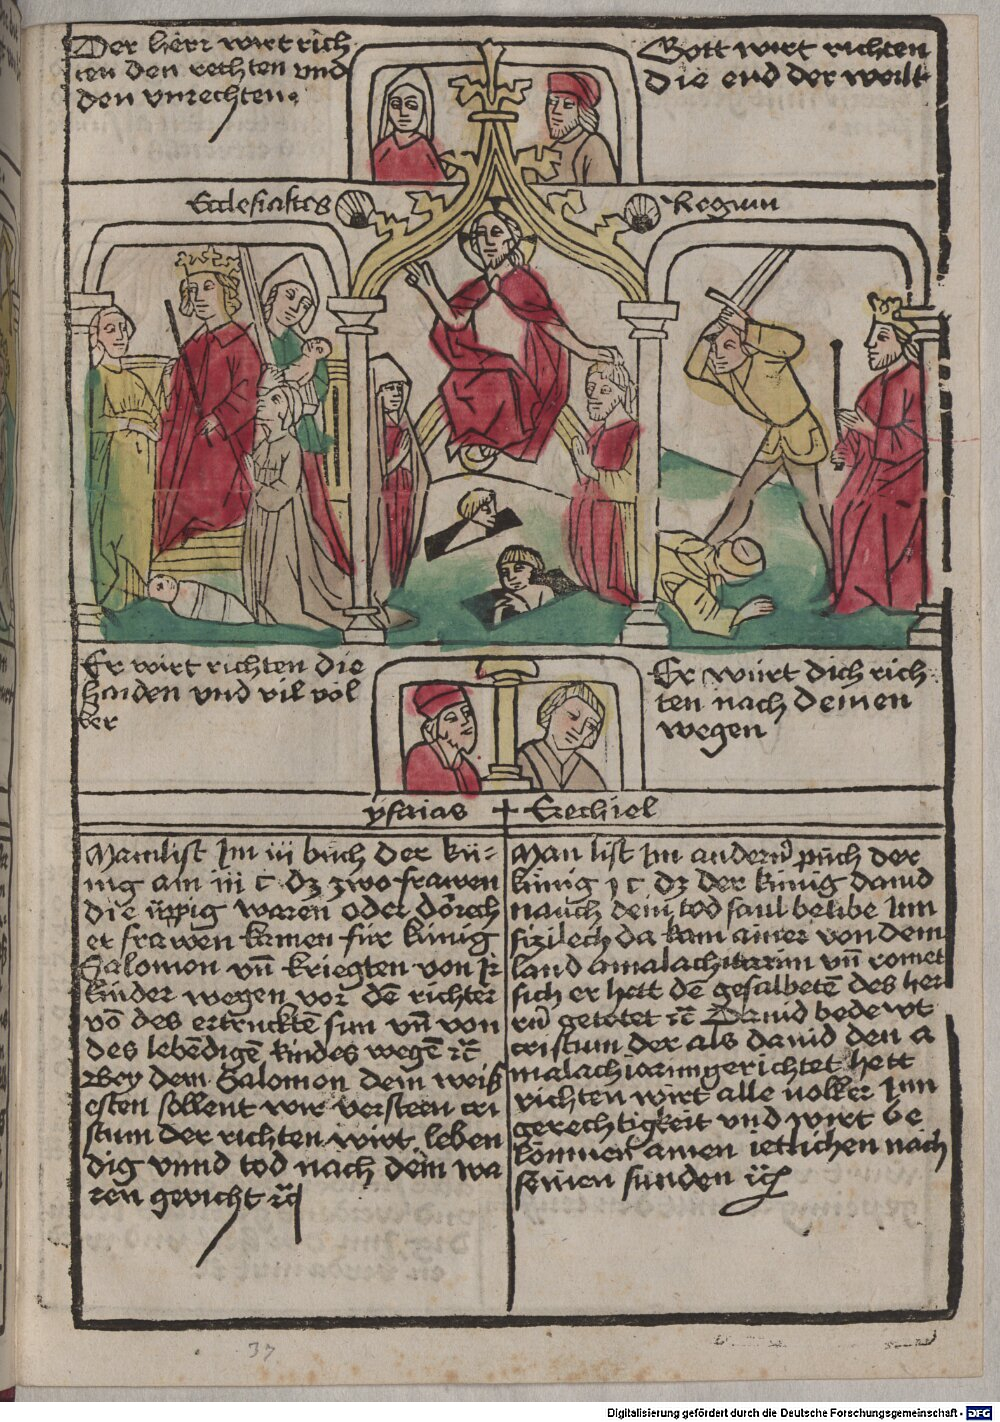 Der herr wirt rich
ten den rechten und
den vnrechten.
Gott wirt richten
die end der welt
Ecclesiastes
Regum
Er wirt richten die
haiden vnd vil völ
ker
Er wirt dich rich
ten nach deinen
wegen
ysaias + Ezechiel
Man list Im iii bůch der kü-
nig am iii c dz zwo frawen
die üppig waren oder dörech
et frawen kamen für künig
Salomon vn̄ kriegten von Ir
kinder wegen vor dē richter
vō des ertrucktē sun vn̄ von
des lebēdigē kindes wegē ꝛc̄
Bey dem Salomon dem weiß
esten sollent wir versteen cri
stum der richten wirt leben
dig vnnd tod nach dem wa
ren gericht ꝛc̄
Man list Im andern půch der
künig j c dz der künig dauid
nauch dem tod saul belibe Inn
sizilech da kam ainer von dem
land amalachitarum vn̄ romet
sich er hett dē gesalbetē des her
rn̄ getötet ꝛc̄ Dauid bedewt
cristum der als dauid den a
malachiarum gerichtet hett
richten wirt alle völker Inn
gerechtigkeit vnd wirt be
lönnen ainen ietlichen nach
seinen sünden ꝛc̄
37
Digitalisierung gefördert durch die Deutsche Forschungsgemeinschaft - DFG